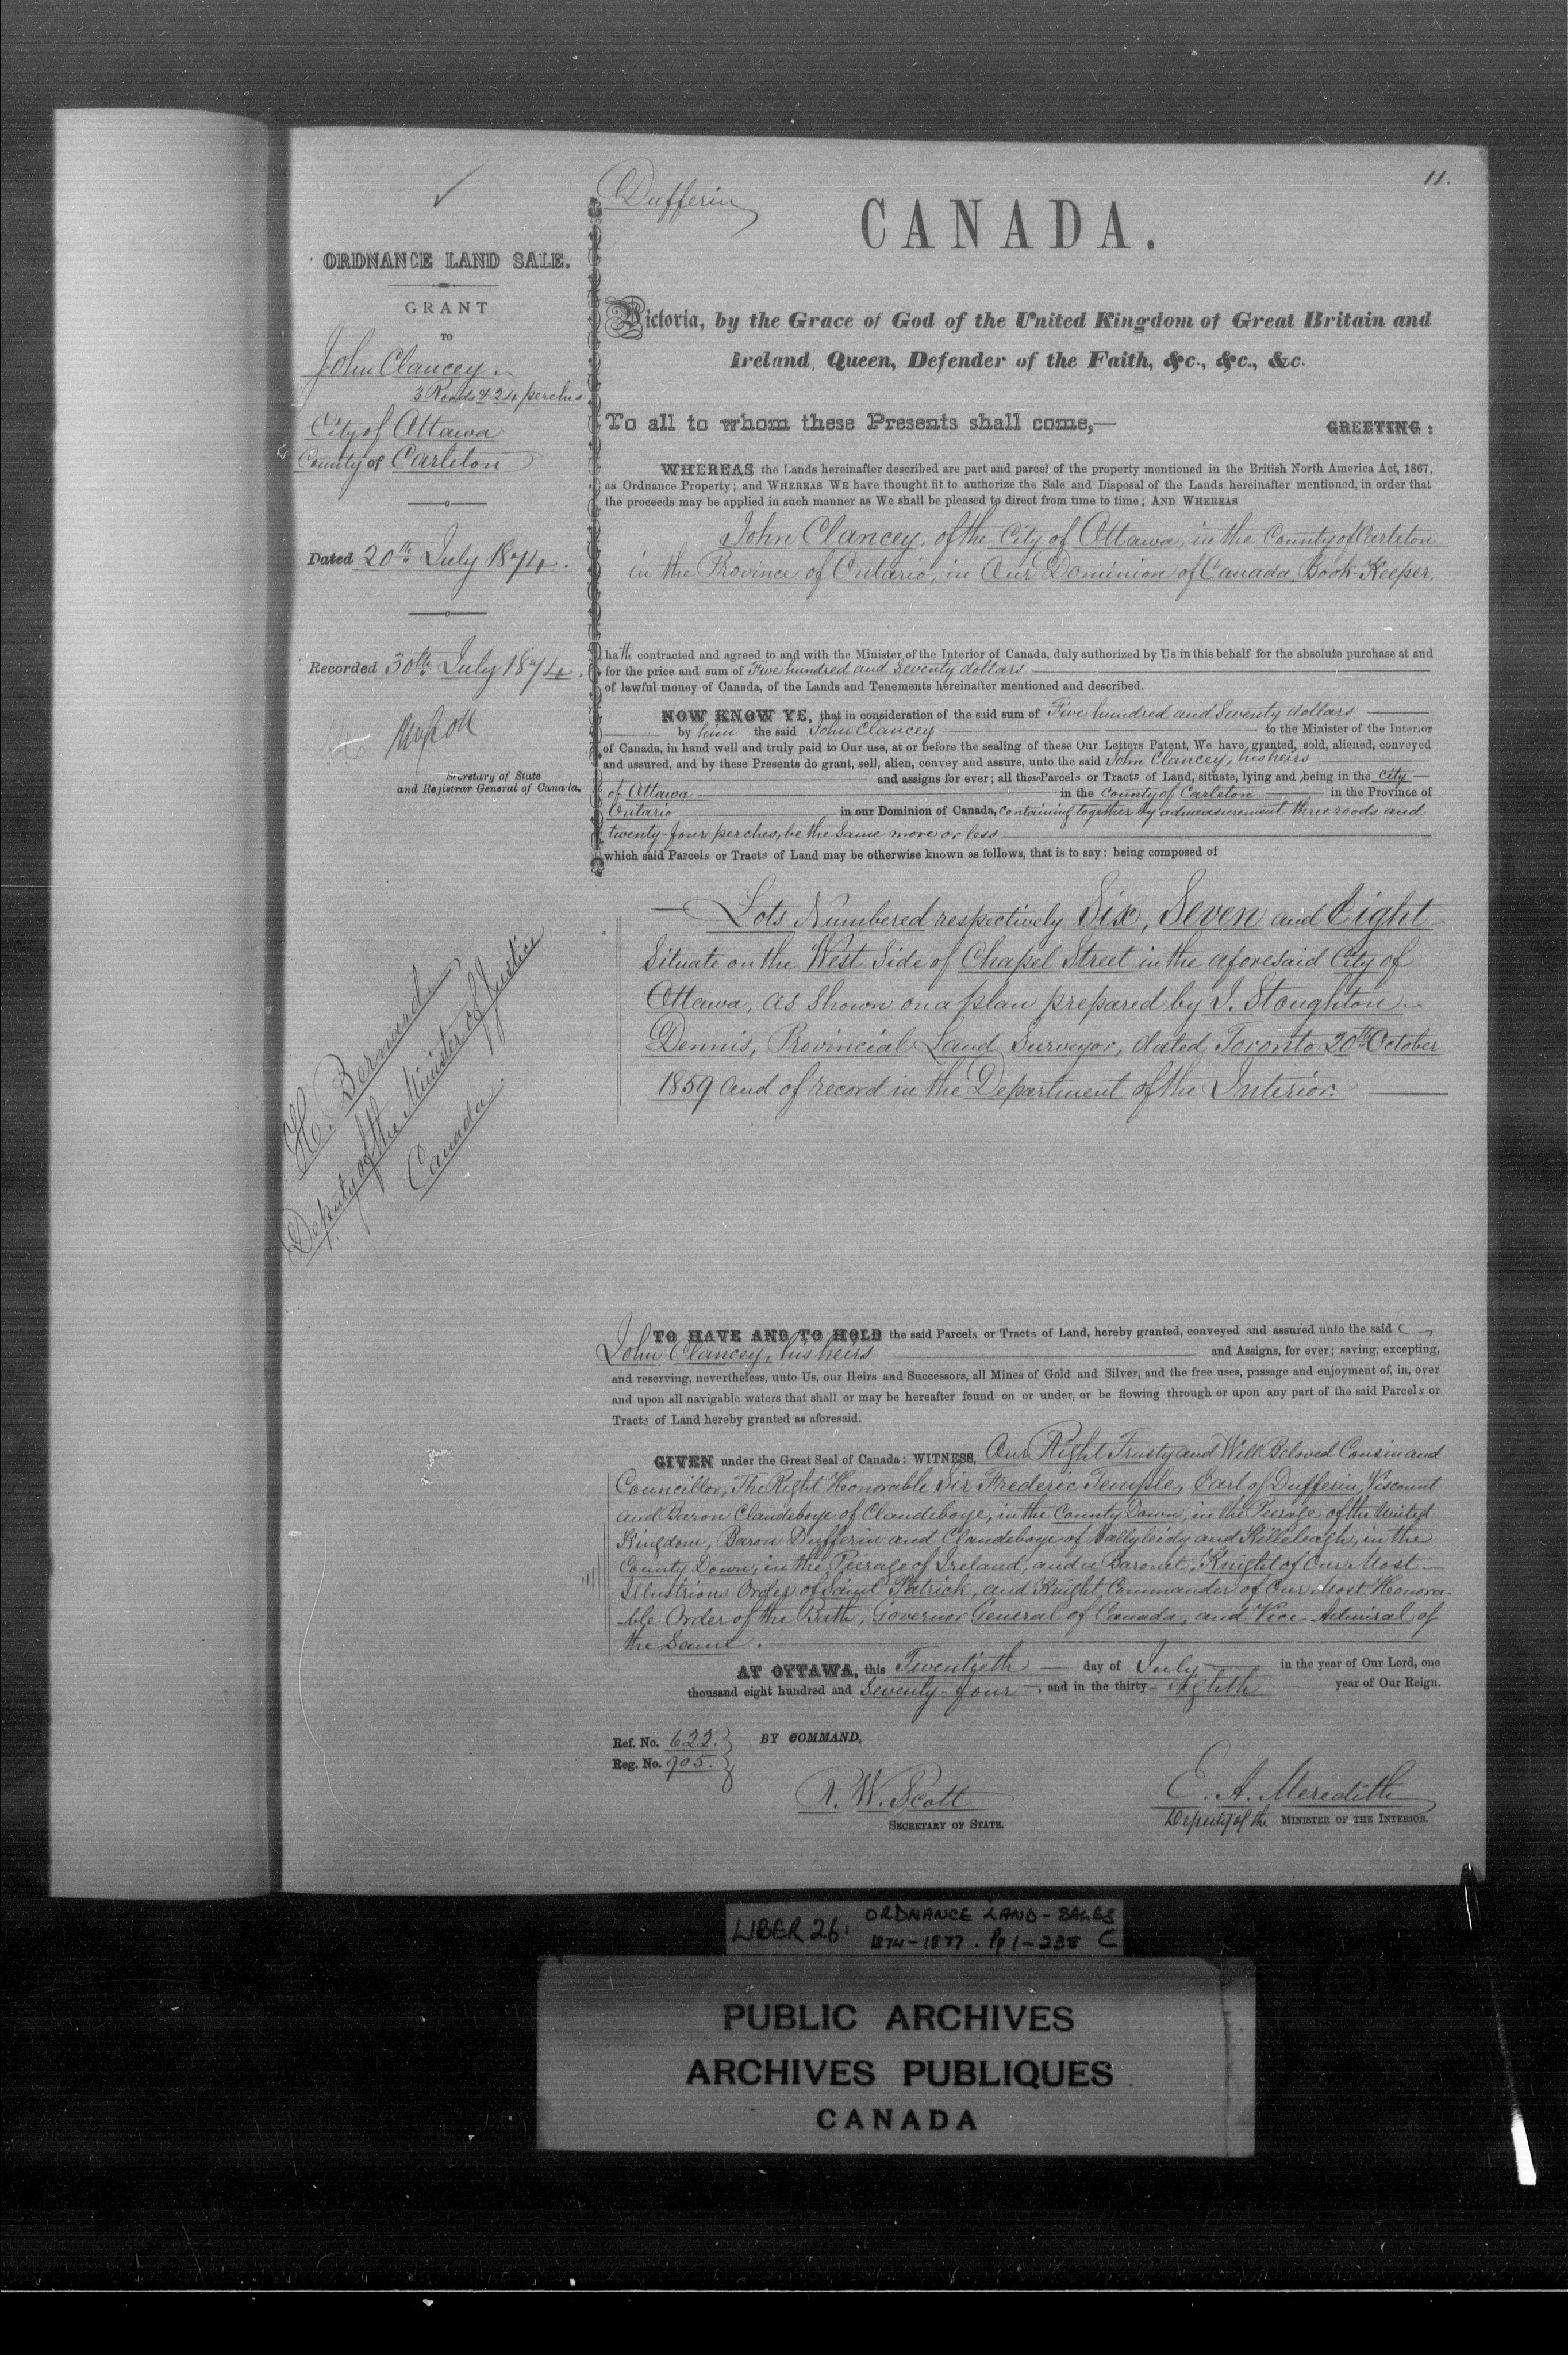 11.
Dufferin
CANADA.
ORDNANCE LAND SALE.
GRANT
TO
John Clancey
3 Roods & 24 perches
City of Ottawa
County of Carleton
Dated 20th July 1874.
Recorded 30th July 1874.
Secretary of State
and Registrar General of Canada.
H. Bernard
Deputy of the Minister of Justice
Canada.
Victoria, by the Grace of God of the United Kingdom of Great Britain and
Ireland, Queen, Defender of the Faith, &c., &c., &c.
To all to whom these Presents shall come,— GREETING:
WHEREAS the Lands hereinafter described are part and parcel of the property mentioned in the British North America Act, 1867,
as Ordnance Property; and WHEREAS WE have thought fit to authorize the Sale and Disposal of the Lands hereinafter mentioned, in order that
the proceeds may be applied in such manner as We shall be pleased to direct from time to time; AND WHEREAS
John Clancey, of the City of Ottawa, in the County of Carleton
in the Province of Ontario, in Our Dominion of Canada, Book-Keeper,
hath contracted and agreed to and with the Minister of the Interior of Canada, duly authorized by Us in this behalf for the absolute purchase at and
for the price and sum of Five hundred and Seventy dollars
of lawful money of Canada, of the Lands and Tenements hereinafter mentioned and described.
NOW KNOW YE, that in consideration of the said sum of Five hundred and Seventy dollars
by him the said John Clancey to the Minister of the Interior
of Canada, in hand well and truly paid to Our use, at or before the sealing of these Our Letters Patent, We have granted, sold, aliened, conveyed
and assured, and by these Presents do grant, sell, alien, convey and assure, unto the said John Clancey, his heirs
and assigns for ever; all those Parcels or Tracts of Land, situate, lying and being in the City
of Ottawa in the County of Carleton in the Province of
Ontario in our Dominion of Canada, containing together by admeasurement three roods and
twenty-four perches, be the same more or less
which said Parcels or Tracts of Land may be otherwise known as follows, that is to say: being composed of
Lots Numbered respectively Six, Seven and Eight
Situate on the West Side of Chapel Street in the aforesaid City of
Ottawa, as shown on a plan prepared by J. Stoughton
Dennis, Provincial Land Surveyor, dated Toronto 20th October
1859 and of record in the Department of the Interior.
TO HAVE AND TO HOLD the said Parcels or Tracts of Land, hereby granted, conveyed and assured unto the said
John Clancey, his heirs and Assigns, for ever; saving, excepting,
and reserving, nevertheless, unto Us, our Heirs and Successors, all Mines of Gold and Silver, and the free uses, passage and enjoyment of, in, over
and upon all navigable waters that shall or may be hereafter found on or under, or be flowing through or upon any part of the said Parcels or
Tracts of Land hereby granted as aforesaid.
GIVEN under the Great Seal of Canada: WITNESS, Our Right Trusty and Well Beloved Cousin and
Councillor, The Right Honorable Sir Frederic Temple, Earl of Dufferin, Viscount
and Baron Clandeboye of Clandeboye, in the County Down, in the Peerage of the United
Kingdom, Baron Dufferin and Clandeboye of Ballyleidy and Killeleagh, in the
County Down, in the Peerage of Ireland, and a Baronet, Knight of Our Most
Illustrious Order of Saint Patrick, and Knight Commander of Our Most Honora-
ble Order of the Bath, Governor General of Canada, and Vice Admiral of
the Same.
AT OTTAWA, this Twentieth day of July in the year of Our Lord, one
thousand eight hundred and Seventy-four, and in the thirty-eighth year of Our Reign.
Ref. No. 622.
Reg. No. 905.
BY COMMAND,
R. W. Scott
SECRETARY OF STATE.
E. A. Meredith
Deputy of the MINISTER OF THE INTERIOR.
LIBER 26: ORDNANCE LAND-SALES
1874-1877. Pp 1-238 C
PUBLIC ARCHIVES
ARCHIVES PUBLIQUES
CANADA